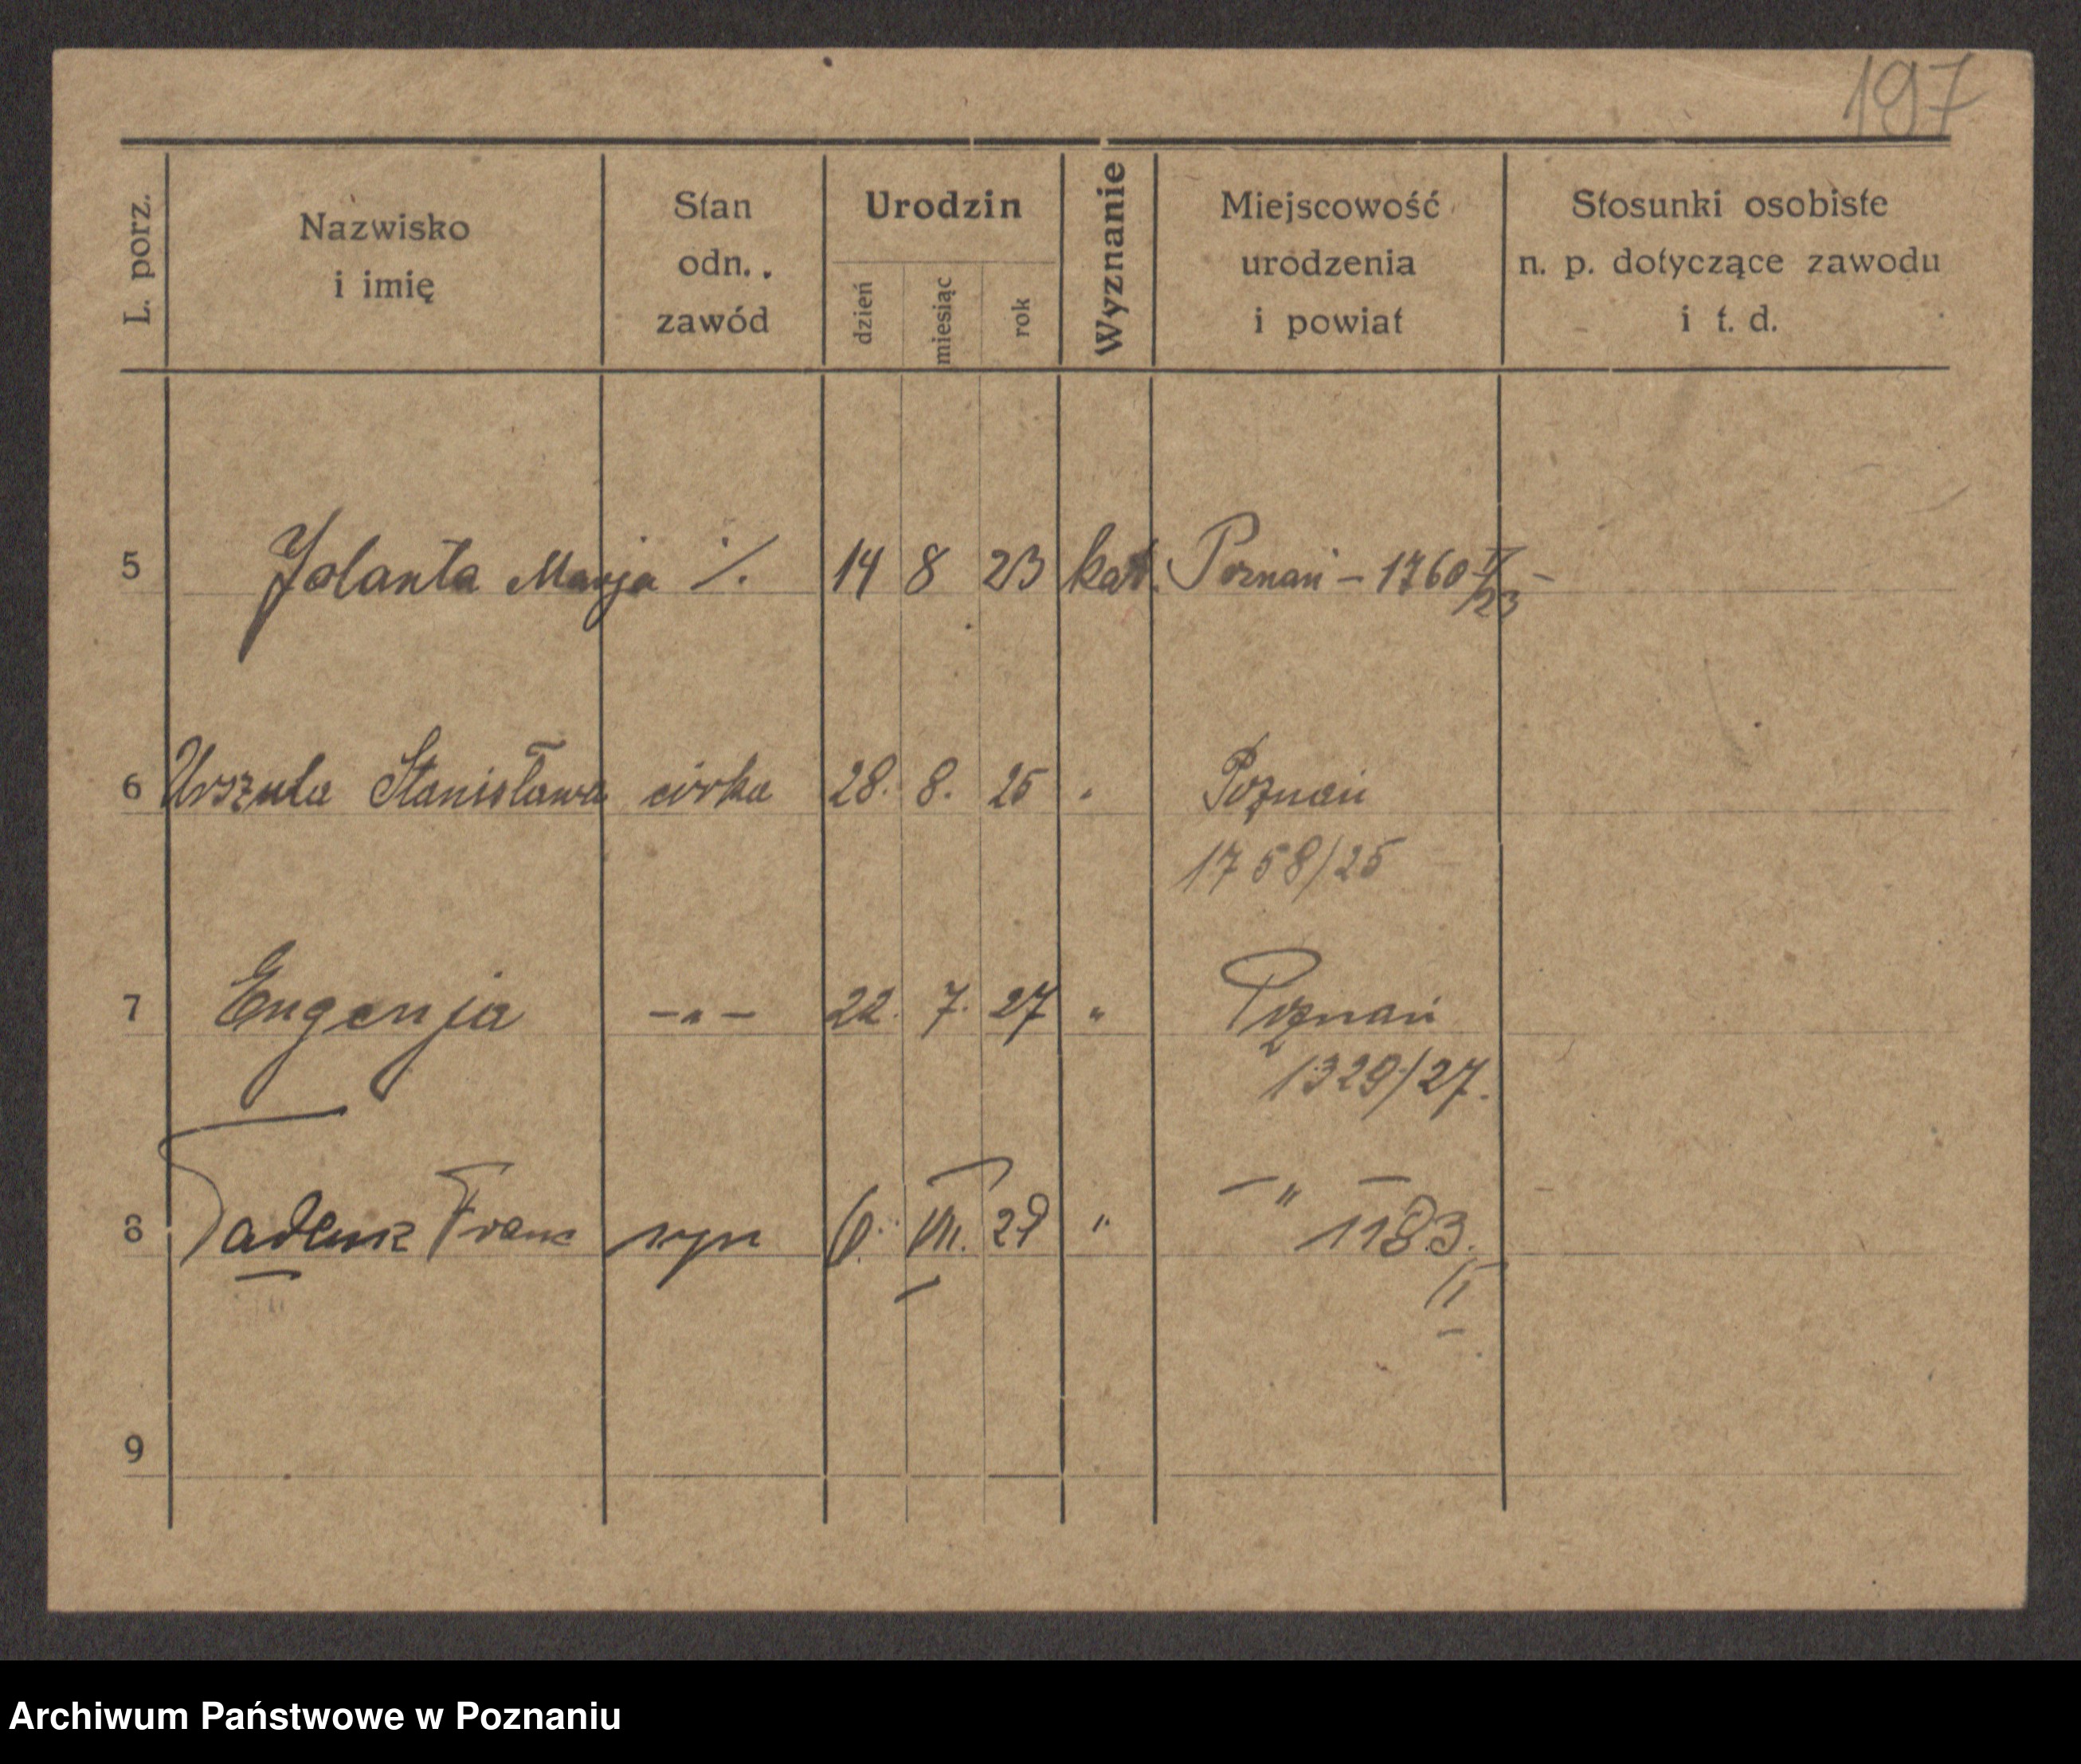 197
L. porz.
Nazwisko
i imię
Stan
odn. .
zawód
Urodzin
dzień
miesiąc
rok
Wyznanie
Miejscowość
urodzenia
i powiat
Stosunki osobiste
n. p. dotyczące zawodu
i t. d.
5 Jolanta Marja ·/. 14 8 23 kat. Poznań – 1760 I/23 –
6 Urszula Stanisława córka 28. 8. 25 " Poznań
1758/25
7 Eugenja –"– 22. 7. 27 " Poznań
1329/27.
8 Tadeusz Franc syn 6. VII. 29 " –"–
1183.
II
9
Archiwum Państwowe w Poznaniu